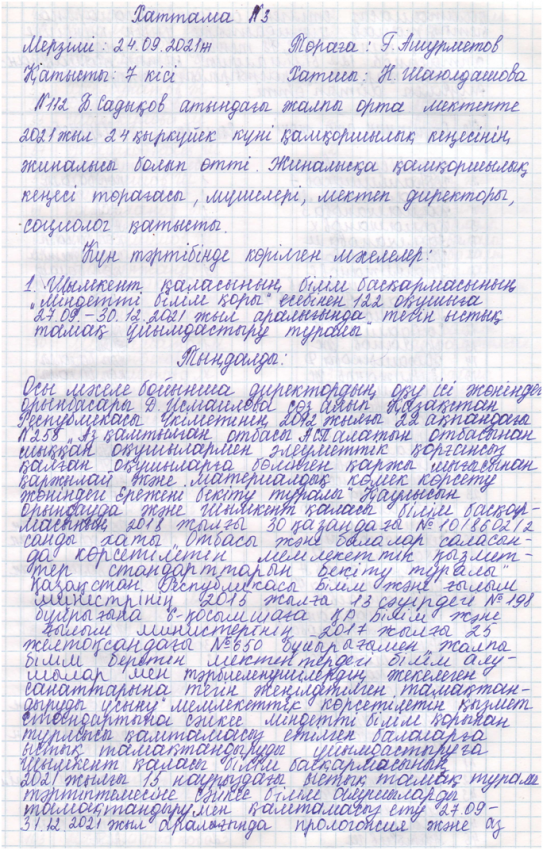 Хаттама №3
Мерзімі: 24.09.2021ж Төраға: Г.Ашурметов
Қатысты: 7 кісі Хатшы: Н.Шаюлдашова
№112 Д.Садықов атындағы жалпы орта мектепте
2021 жыл 24 қыркүйек күні қамқоршылық кеңесінің
жиналысы болып өтті. Жиналысқа қамқоршылық
кеңесі төрағасы, мүшелері, мектеп директоры,
социолог қатысты.
Күн тәртібінде көрілген мәселелер:
1. Шымкент қаласының білім басқармасының
"Міндетті білім қоры" есебінен 122 оқушыға
27.09.-30.12.2021 жыл аралығында тегін ыстық
тамақ ұйымдастыру туралы"
Тыңдалды:
Осы мәселе бойынша директордың оқу ісі жөніндегі
орынбасары Д.Исмаилова сөз алып Қазақстан
Республикасы Үкіметінің 2012 жылғы 22 ақпандағы
№258 "Аз қамтылған отбасы АӘК алатын отбасынан
шыққан оқушылармен әлеуметтік қорғансыз
қалған оқушыларға бөлінген қаржы шығысынан
қаржылай және материалдық көмек көрсету
жөніндегі Ережені бекіту туралы" Қаулысын
орындауда және Шымкент қаласы білім басқар-
масының 2018 жылғы 30 қазандағы №10/8602/2
санды хаты "Отбасы және балалар саласын-
да көрсетілетін мемлекеттік қызмет-
тер стандарттарын бекіту туралы"
Қазақстан Республикасы Білім және ғылым
министрінің 2015 жылғы 13 сәуірдегі №198
бұйрығына 6-қосымшаға ҚР Білім және
ғылым министерінің 2017 жылғы 25
желтоқсандағы №650 бұйрығымен жалпы
білім беретін мектептердегі білім алу-
шылар мен тәрбиеленушілердің жекелеген
санаттарына тегін жеңілдетілген тамақтан-
дыруды ұсыну" мемлекеттік көрсетілетін қызмет
стандартына сәйкес міндетті білім қорынан
тұрмысы қамтамасыз етілген балаларға
ыстық тамақтандыруды ұйымдастыруға
Шымкент қаласы білім басқармасының
2021 жылғы 15 наурыздағы ыстық тамақ туралы
тәртіптемесіне сәйкес білім алушыларды
тамақтандырумен қамтамасыз ету 27.09-
31.12.2021 жыл аралығында пролоногсия және аз